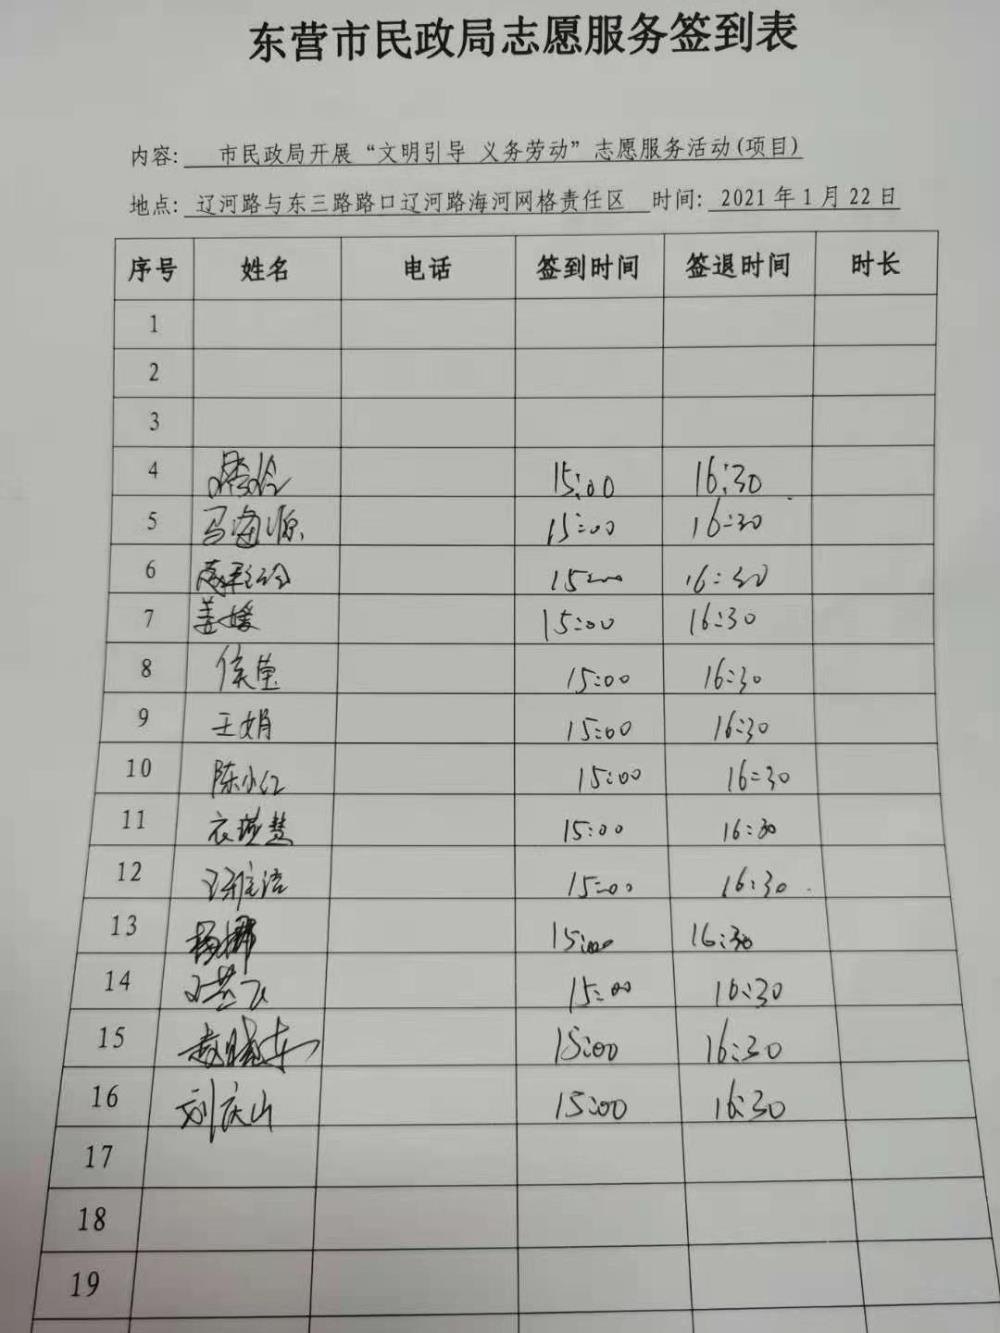 东营市民政局志愿服务签到表
内容: 市民政局开展“文明引导 义务劳动”志愿服务活动(项目)
地点: 辽河路与东三路路口辽河路海河网格责任区 时间: 2021年1月22日
序号 姓名 电话 签到时间 签退时间 时长
1
2
3
4 15:00 16:30
5 马海源 15:00 16:30
6 15:00 16:30
7 姜媛 15:00 16:30
8 侯莹 15:00 16:30
9 王娟 15:00 16:30
10 陈小红 15:00 16:30
11 衣璇慧 15:00 16:30
12 15:00 16:30
13 15:00 16:30
14 15:00 16:30
15 赵晓东 15:00 16:30
16 刘庆山 15:00 16:30
17
18
19